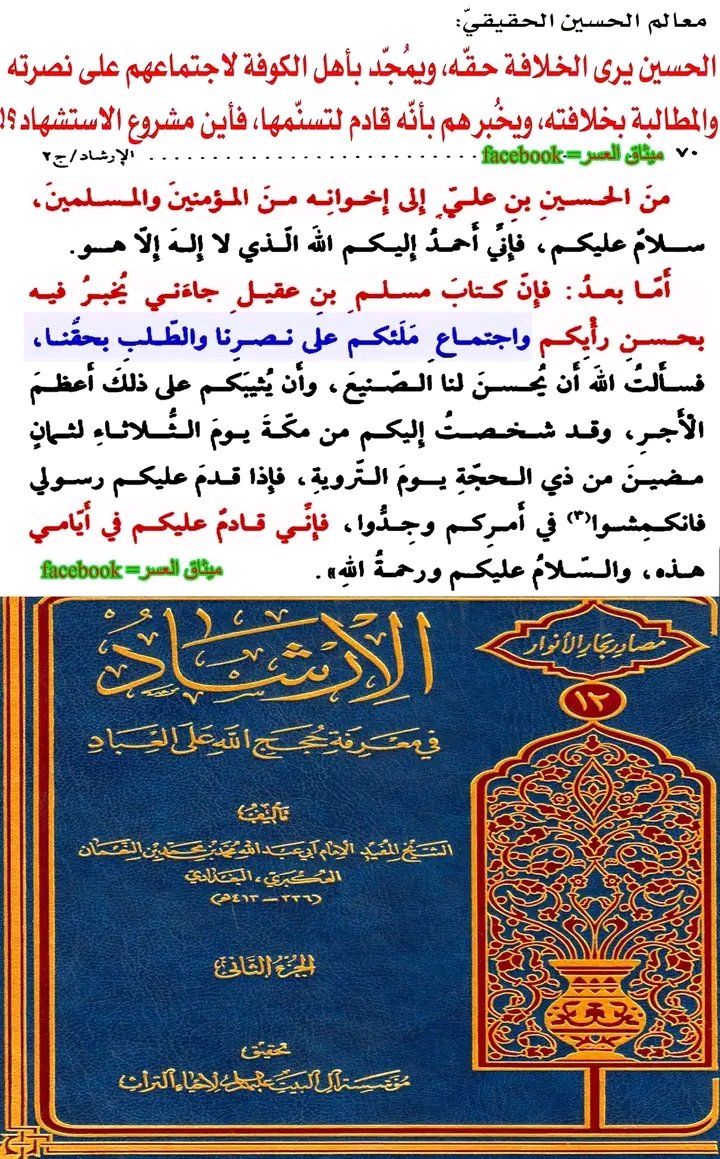 معالم الحسين الحقيقيّ:
الحسين يرى الخلافة حقّه، ويمُجّد بأهل الكوفة لاجتماعهم على نصرته
والمطالبة بخلافته، ويخُبرهم بأنّه قادم لتسنّمها، فأين مشروع الاستشهاد؟!
٧٠ ميثاق العسر=facebook ........................... الإرشاد/ج٢
منَ الحسينِ بنِ عليّ إلى إخوانِه منَ المؤمنينَ والمسلمينَ،
سلامٌ عليكم، فإنِّي أَحمدُ إليكم اللهَ الّذي لا إلهَ إلّا هو.
أمّا بعدُ: فإنّ كتابَ مسلمِ بنِ عقيلٍ جاءَني يُخبرُ فيه
بحسنِ رأْيِكم واجتماعِ مَلَئكم على نصرِنا والطّلبِ بحقِّنا،
فسأَلتُ اللهَ أَن يُحسنَ لنا الصّنيعَ، وأَن يُثيبَكم على ذلكَ أَعظمَ
الأَجرِ، وقد شخصتُ إليكم من مكّةَ يومَ الثُّلاثاءِ لثمانٍ
مضينَ من ذي الحجّةِ يومَ التّرويةِ، فإذا قدمَ عليكم رسولي
فانكمِشوا(٣) في أَمرِكم وجِدُّوا، فإنِّي قادمٌ عليكم في أيّامي
هذه، والسّلامُ عليكم ورحمةُ اللهِ».
ميثاق العسر=facebook
مصادر بحار الأنوار
١٢
الإرشاد
في معرفة حجج الله على العباد
تأليف
الشيخ المفيد الإمام أبي عبد الله محمد بن محمد بن النعمان
العكبري، البغدادي
(٣٣٦ - ٤١٣ هـ)
الجزء الثاني
تحقيق
مؤسسة آل البيت عليهم السلام لإحياء التراث